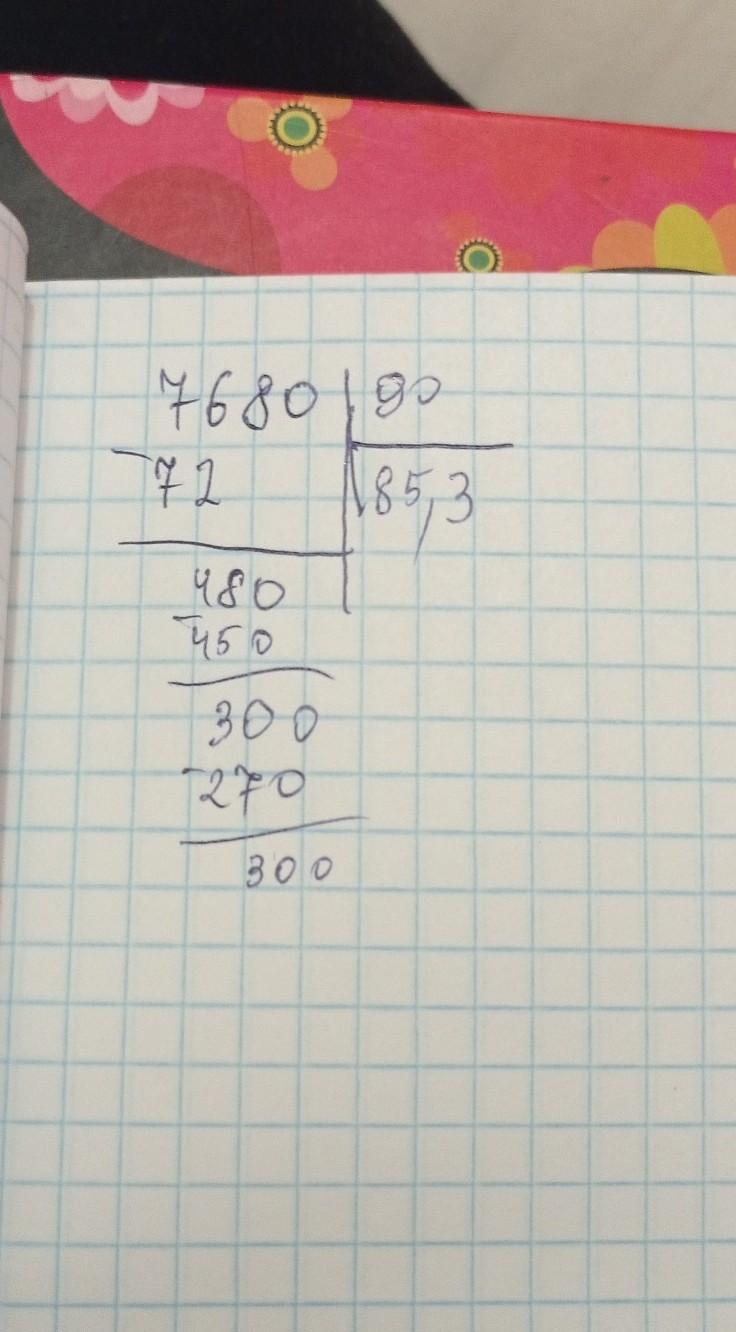 7680 90
-72 85,3
480
-450
300
-270
300